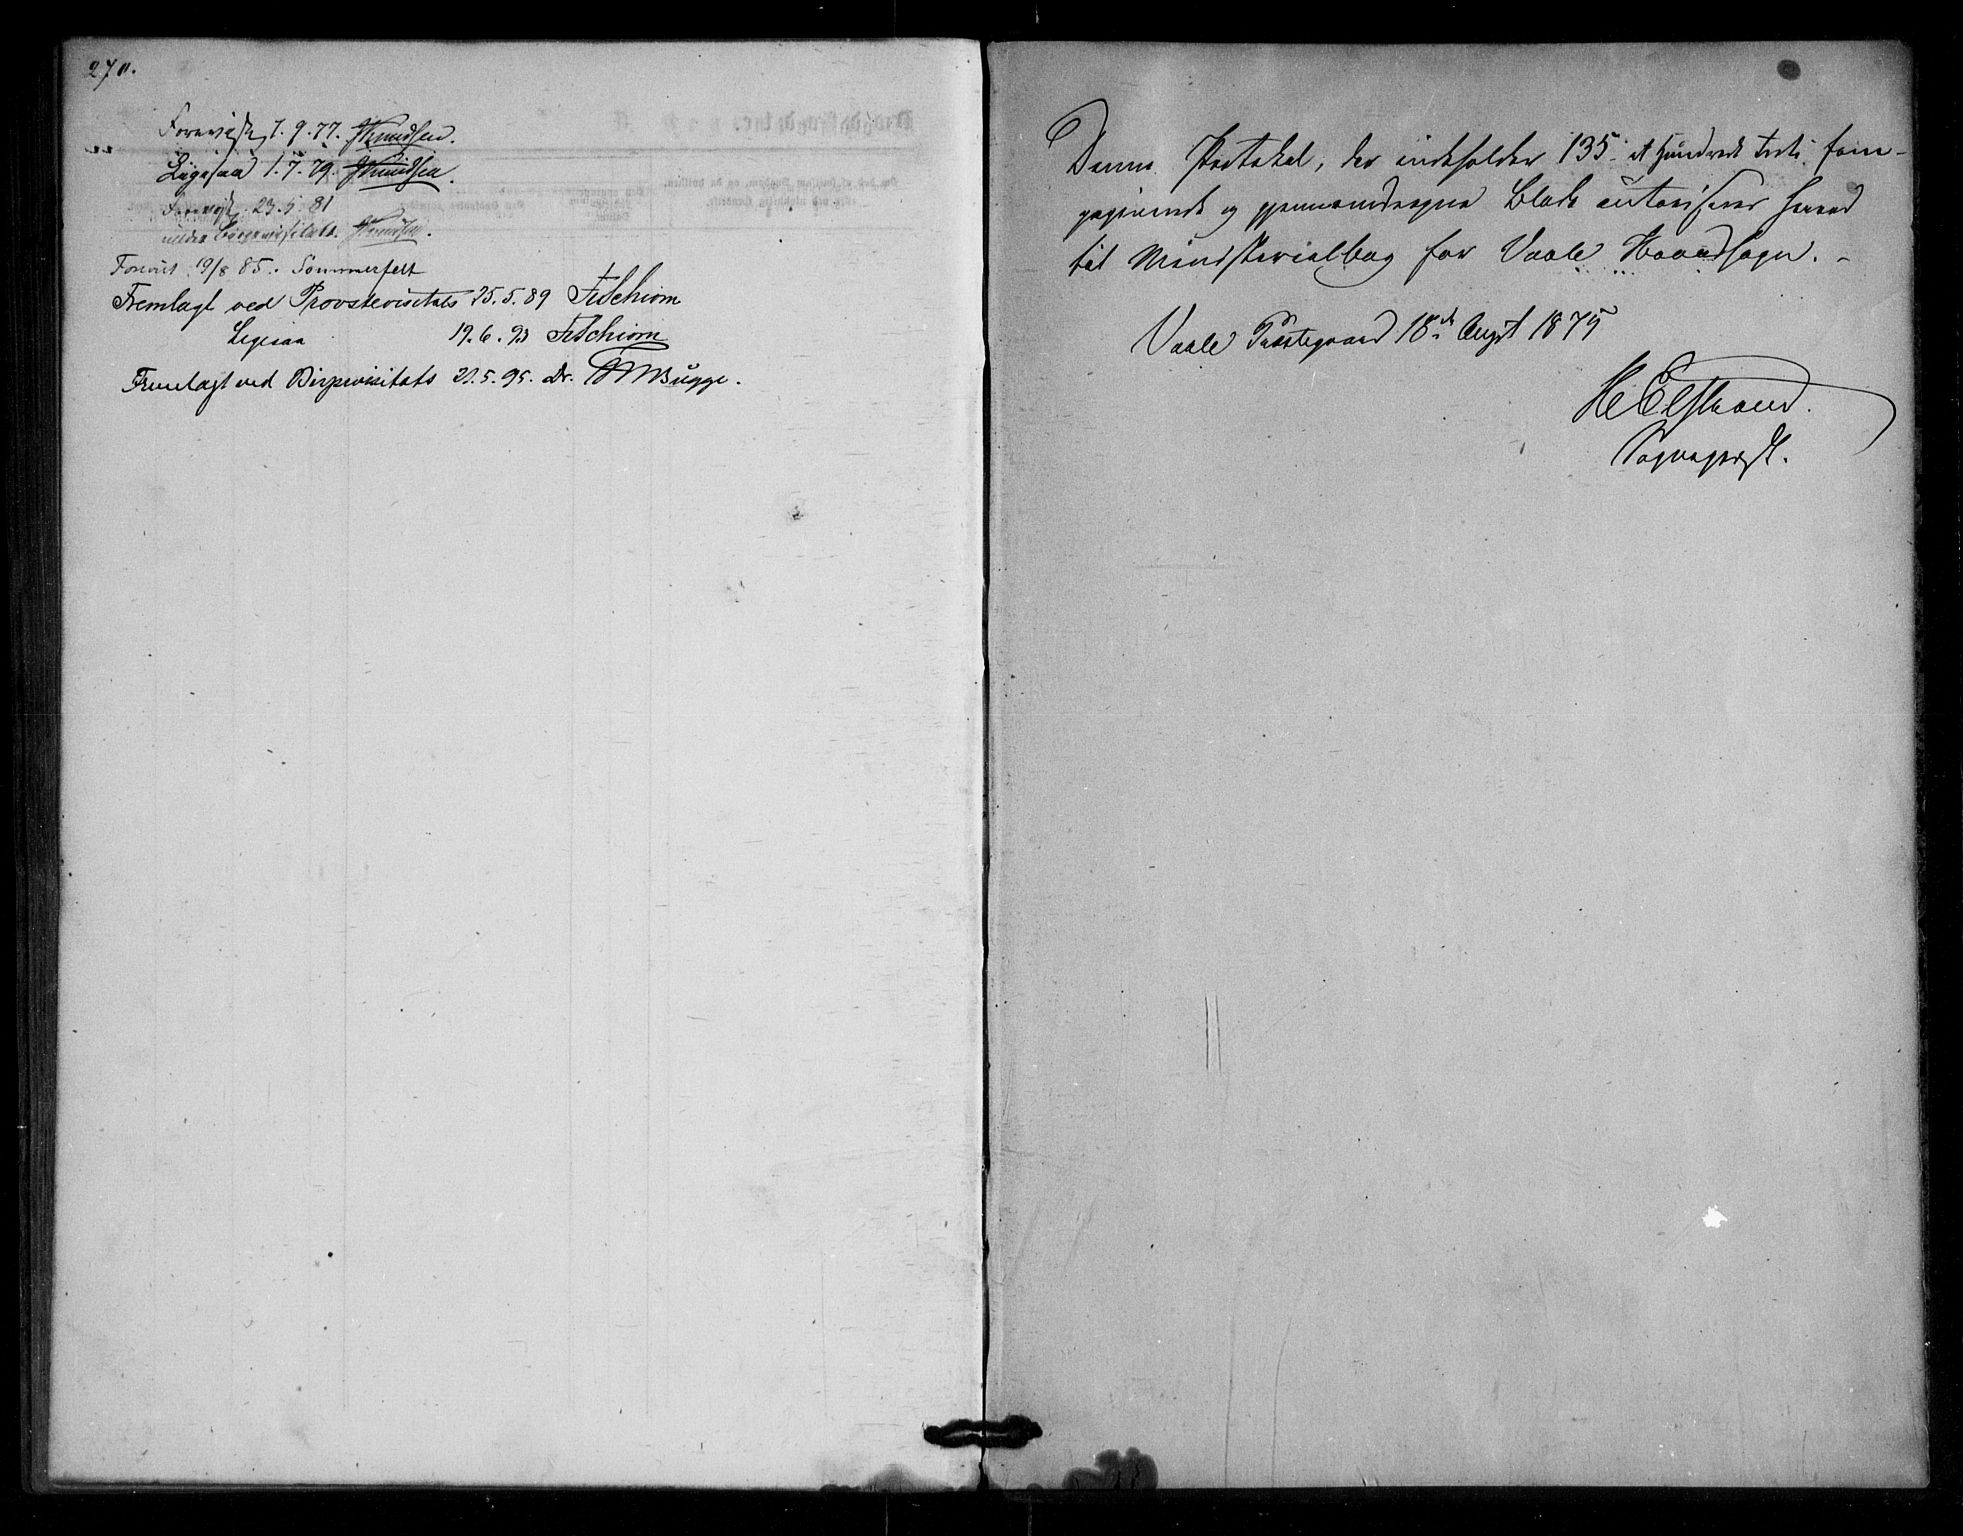 270.
Forevist 7.9.77. JKnudsen.
Ligesaa 1.7.79. JKnudsen.
Forevist 23.5 81
under Bispevisitats. JKnudsen.
Forevist 19/8 85. Sommerfelt
Fremlagt ved Provstevisitats 25.5.89 FSchiørn
Ligesaa 19.6.93 FSchiørn
Fremlagt ved Bispevisitats 21.5.95. Dr. Bugge.
Denne Protokol, der indeholder 135 - et Hundrede Treti fem -
paginerede og gjennemdragne Blade autoriseres herved
til Ministerialbog for Vaale Hovedsogn. -
Vaale Præstegaard 18de Augst 1875
Sognepræst.